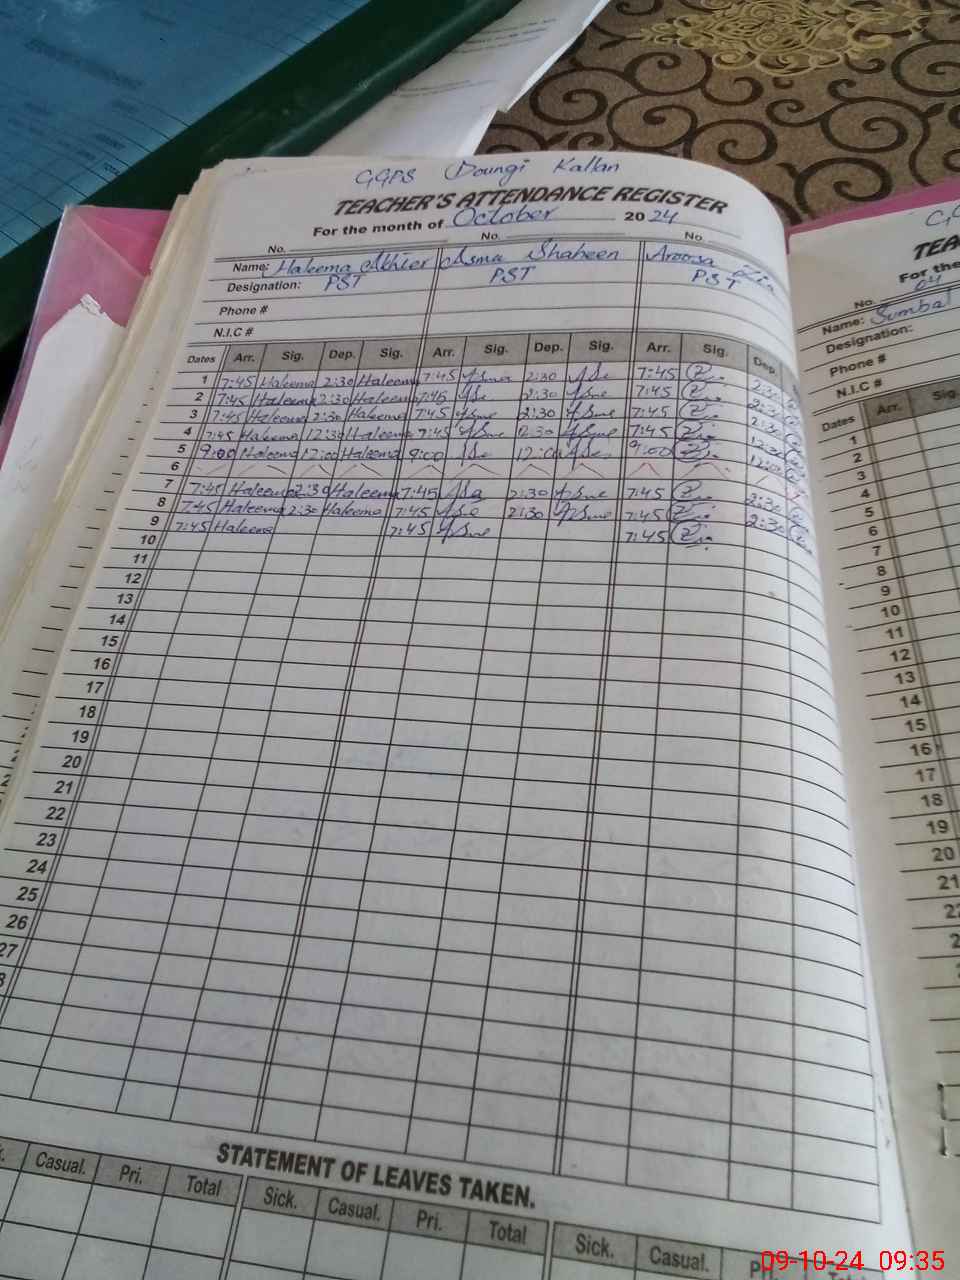 GGPS Doungi Kallan
TEACHER'S ATTENDANCE REGISTER
For the month of October 2024
No. No. No.
Name: Haleema Akhter Asma Shaheen Aroosa Zia
Designation: PST PST PST
Phone #
N.I.C #
Dates Arr. Sig. Dep. Sig. Arr. Sig. Dep. Sig. Arr. Sig. Dep.
1 7:45 Haleema 2:30 Haleema 7:45 Asma 2:30 7:45 2:30
2 7:45 Haleema 2:30 Haleema 7:45 2:30 Asma 7:45 2:30
3 7:45 Haleema 2:30 Haleema 7:45 Asma 2:30 Asma 7:45 2:30
4 7:45 Haleema 12:30 Haleema 7:45 Asma 12:30 Asma 7:45 12:30
5 9:00 Haleema 12:00 Haleema 9:00 12:00 9:00 12:00
6
7 7:45 Haleema 2:30 Haleema 7:45 2:30 Asma 7:45 2:30
8 7:45 Haleema 2:30 Haleema 7:45 2:30 Asma 7:45 2:30
9 7:45 Haleema 7:45 Asma 7:45
10
11
12
13
14
15
16
17
18
19
20
21
22
23
24
25
26
27
STATEMENT OF LEAVES TAKEN.
Casual. Pri. Total Sick. Casual. Pri. Total Sick. Casual.
No. 04
Name: Sumbal
Designation:
Phone #
N.I.C #
Dates Arr. Sig.
1
2
3
4
5
6
7
8
9
10
11
12
13
14
15
16
17
18
19
20
21
09-10-24 09:35